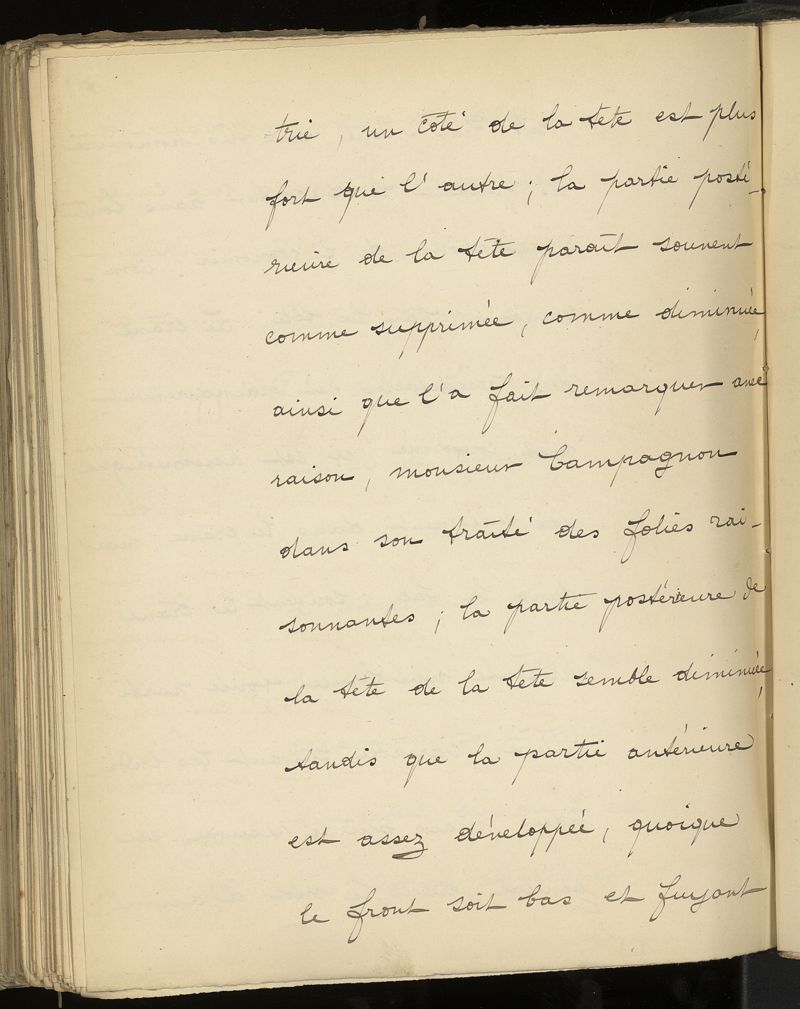 trie, un côté de la tête est plus
fort que l'autre ; la partie posté-
rieure de la tête paraît souvent
comme supprimée, comme diminuée,
ainsi que l'a fait remarquer avec
raison, monsieur Campagnon
dans son traité des folies rai-
sonnantes ; la partie postérieure de
la tête de la tête semble diminuée,
tandis que la partie antérieure
est assez développée, quoique
le front soit bas et fuyant